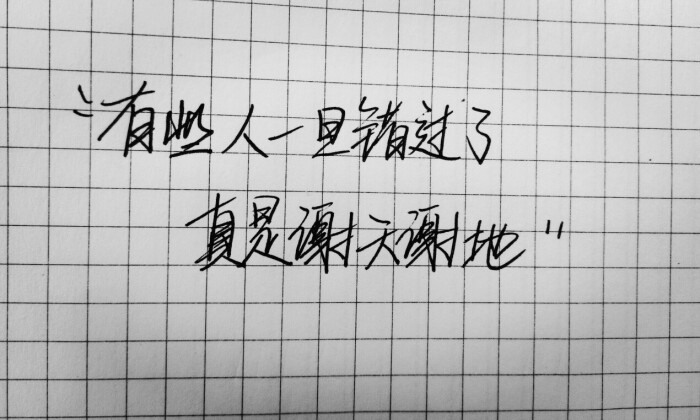 "有些人一旦错过了
真是谢天谢地"